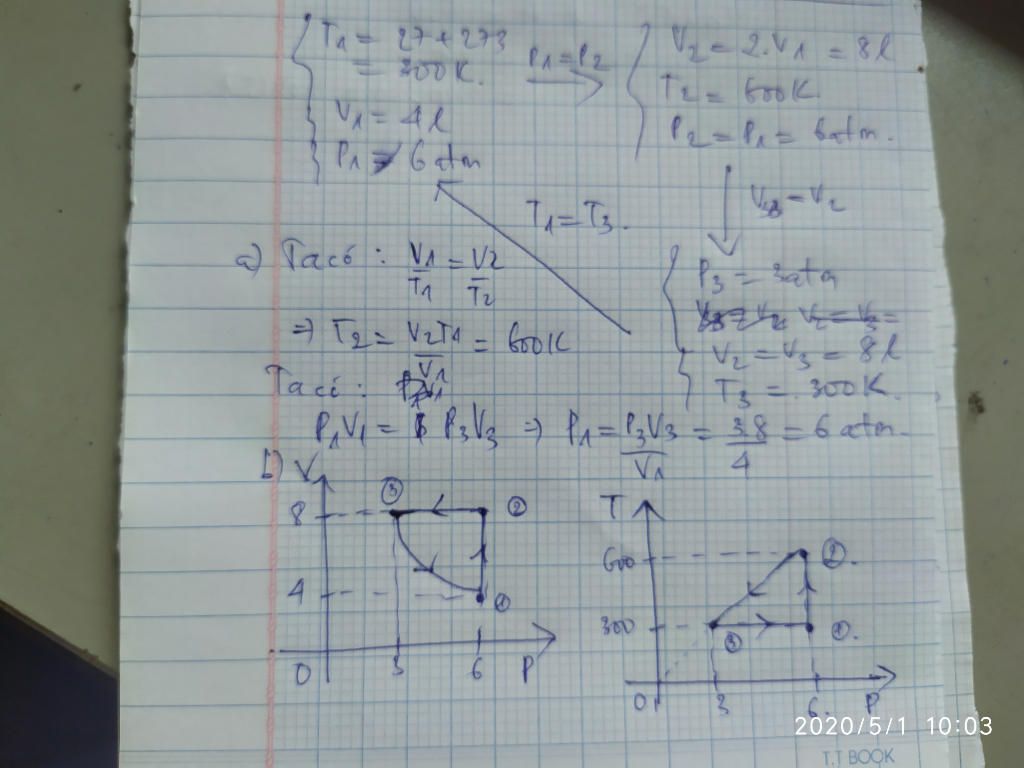 T1 = 27 + 273
= 300K.
V1 = 4l
P1 = 6 atm
P1 = P2
V2 = 2.V1 = 8l
T2 = 600K
P2 = P1 = 6atm.
V3 = V2
T1 = T3.
P3 = 3atm
V2 = V3 = 8l
T3 = 300K.
a) Ta có : V1/T1 = V2/T2
=> T2 = V2T1/V1 = 600K
Ta có :
P1V1 = P3V3 => P1 = P3V3/V1 = 3.8/4 = 6 atm.
b) V
8 ③ ②
4 ①
0 3 6 P
T
600 ②.
300 ③ ①.
0 3 6. P
2020/5/1 10:03
T.T BOOK